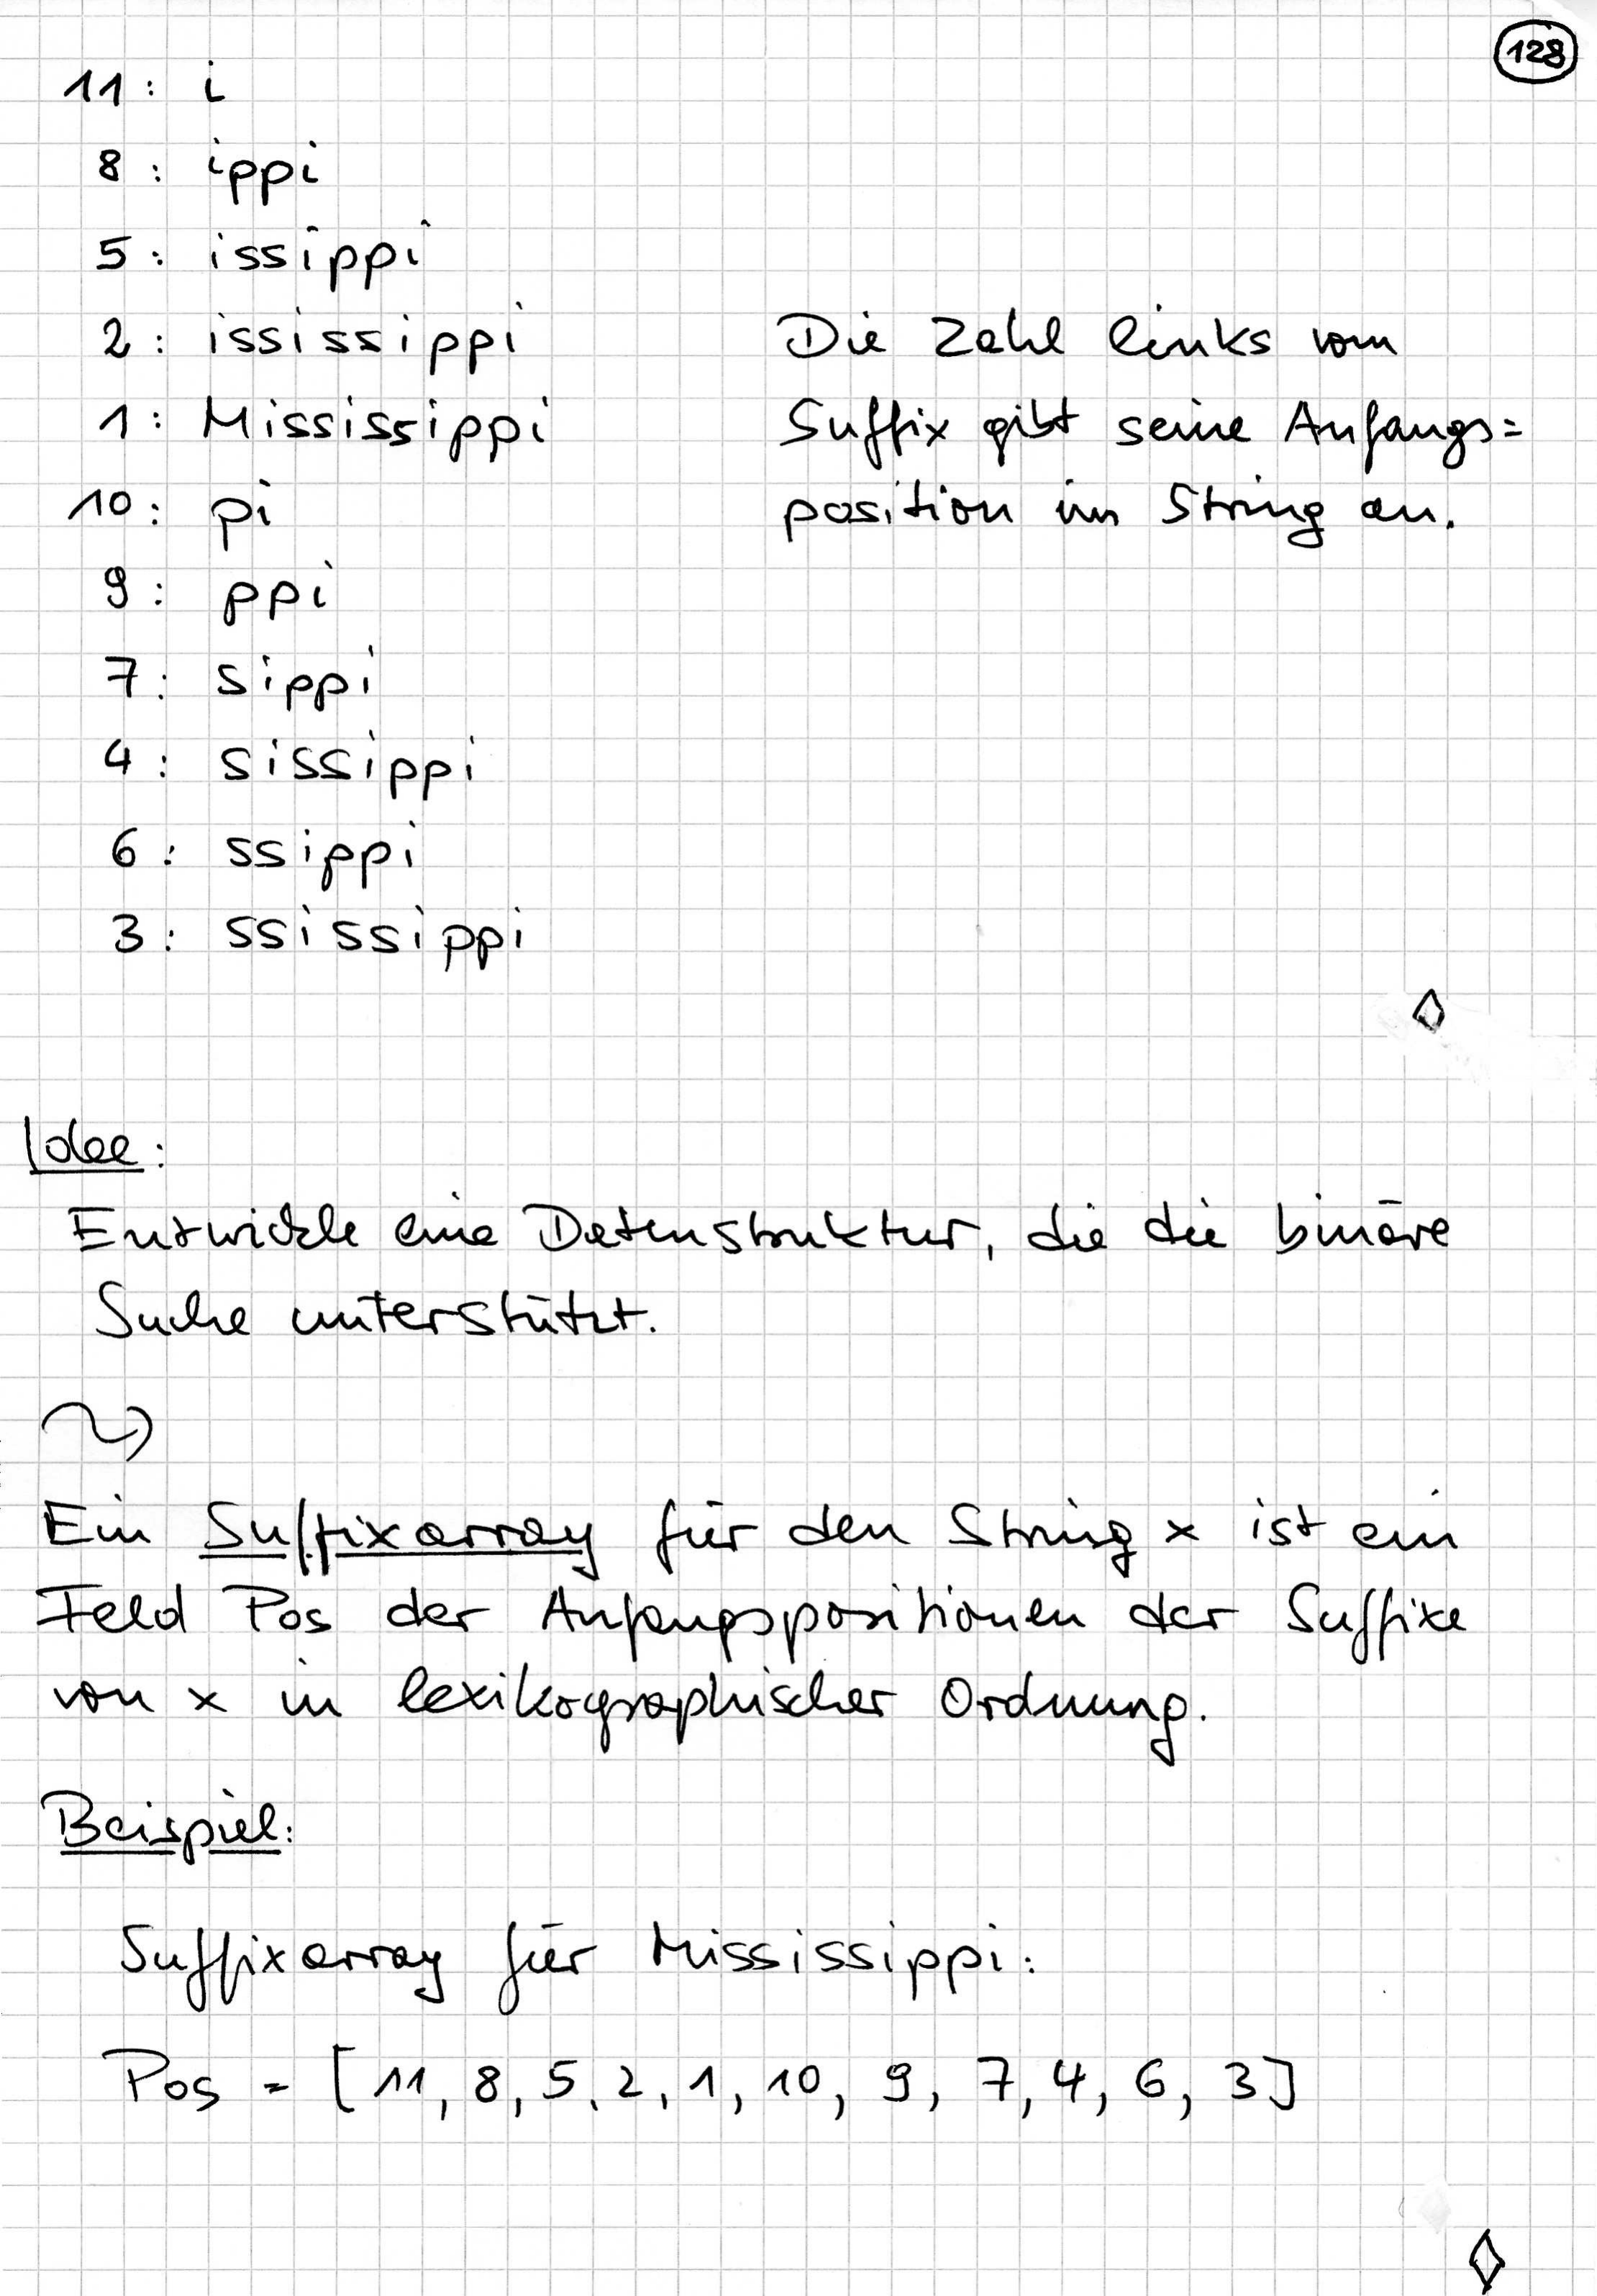 128
11: i
8: ippi
5: issippi
2: ississippi
1: Mississippi
10: pi
9: ppi
7: sippi
4: sissippi
6: ssippi
3: ssissippi
Die Zahl links vom
Suffix gibt seine Anfangs=
position im String an.
Idee:
Entwickle eine Datenstruktur, die die binäre
Suche unterstützt.
Ein Suffixarray für den String x ist ein
Feld Pos der Anfangspositionen der Suffixe
von x in lexikographischer Ordnung.
Beispiel:
Suffixarray für Mississippi:
Pos = [11, 8, 5, 2, 1, 10, 9, 7, 4, 6, 3]